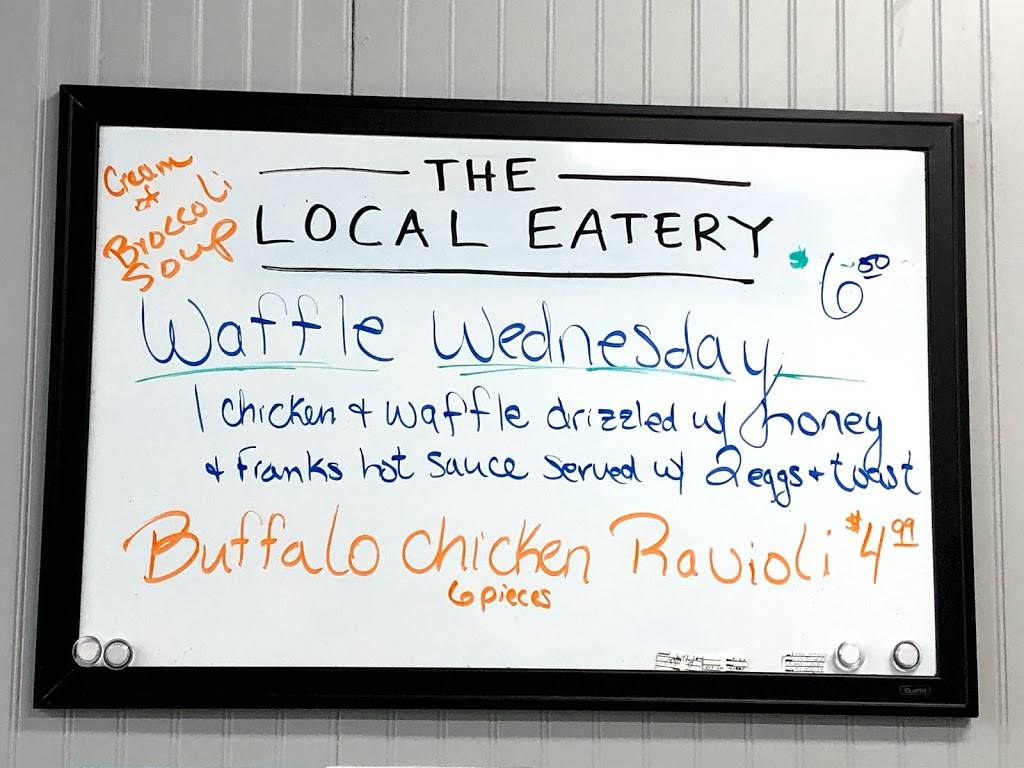 Cream
of
Broccoli
Soup
THE
LOCAL EATERY
$6.50
Waffle Wednesday
1 chicken + waffle drizzled w/ honey
+ Franks hot sauce served w/ 2 eggs + toast
Buffalo chicken Ravioli $4.99
6 pieces
Quartet